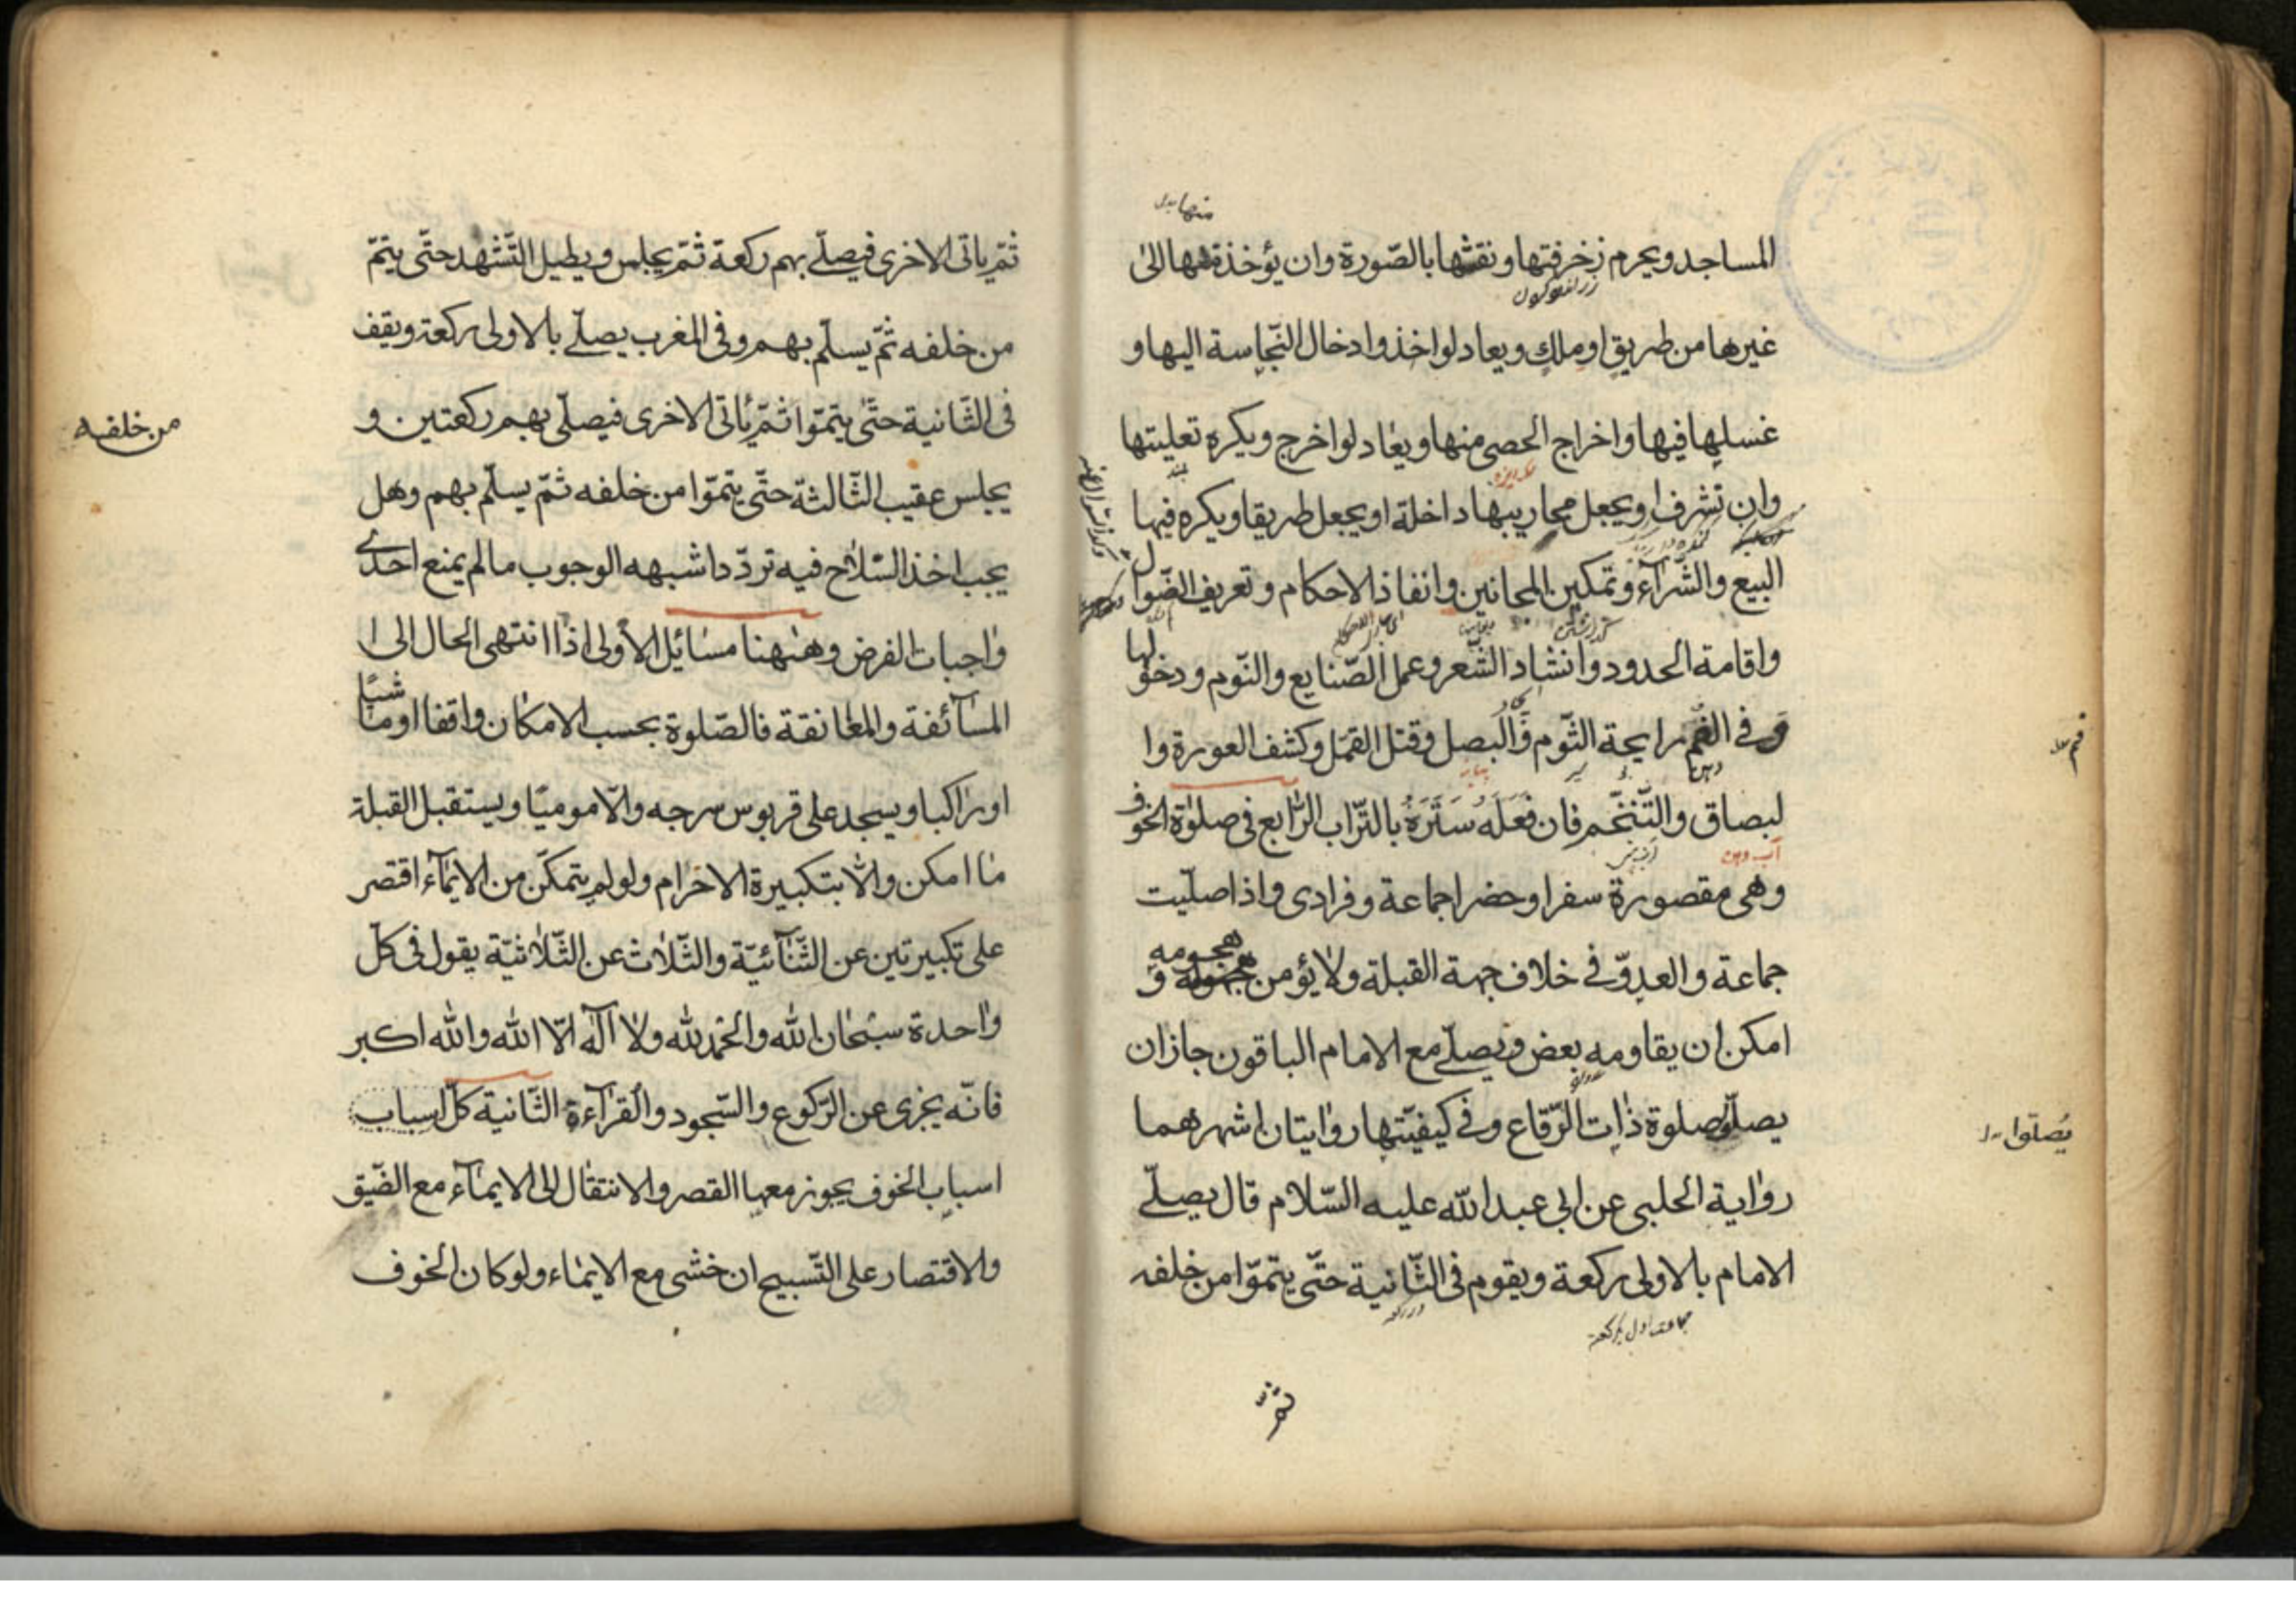 منها بدل
المساجد ويحرم زخرفتها ونقشها بالصّورة وان يؤخذ منها الى
غيرها من طريق او ملك ويعاد لو اخذ وادخال النّجاسة اليها و
غسلها فيها واخراج الحصى منها ويعاد لو اخرج ويكره تعليتها
وان تشرف او يجعل محاريبها داخلة او يجعل طريقا ويكره فيها
البيع والشّرآء وتمكين المجانين وانفاذ الاحكام وتعريف الضّوال
واقامة الحدود وانشاد الشّعر وعمل الصّنايع والنّوم ودخولها
وفي الفم رايحة الثّوم والبصل وقتل القمّل وكشف العورة وا
لبصاق والتّنخّم فان فَعَلَهُ سَتَرَهُ بالتّراب الرّابع في صلوة الخوف
وهي مقصورة سفرا وحضرا جماعة وفرادى واذا صلّيت
جماعة والعدوّ في خلاف جهة القبلة ولا يؤمن هجومه و
امكن ان يقاومه بعض ويصلّي مع الامام الباقون جاز ان
يصلّوا صلوة ذات الرّقاع وفي كيفيّتها روايتان اشهرهما
رواية الحلبي عن ابي عبدالله عليه السّلام قال يصلّي
الامام بالاولى ركعة ويقوم في الثّانية حتّى يتمّوا من خلفه
فم بدل
يُصلّوا بدل
ثمّ
ثمّ ياتى الاخرى فيصلّي بهم ركعة ثمّ يجلس ويطيل التّشهد حتّى يتمّ
من خلفه ثمّ يسلّم بهم وفي المغرب يصلّي بالاولى ركعة ويقف
في الثّانية حتّى يتمّوا ثمّ ياتى الاخرى فيصلّي بهم ركعتين و
يجلس عقيب الثّالثة حتّى يتمّوا من خلفه ثمّ يسلّم بهم وهل
يجب اخذ السّلاح فيه تردّد اشبهه الوجوب ما لم يمنع احدى
واجبات الفرض وههنا مسائيل الاولى اذا انتهى الحال الى ا
لمسآئفة والمعانقة فالصّلوة بحسب الامكان واقفا او ماشيًا
او راكبا ويسجد على قربوس سرجه والّا موميًا ويستقبل القبلة
ما امكن والّا بتكبيرة الاحرام ولو لم يتمكّن من الايمآء اقتصر
على تكبيرتين عن الثّنآئيّة والثّلاث عن الثّلاثيّة يقول في كلّ
واحدة سبحان الله والحمد لله ولا اله الّا الله والله اكبر
فانّه يجزى عن الرّكوع والسّجود والقرآءة الثّانية كلّ اسباب
اسباب الخوف يجوز معها القصر والانتقال الى الايمآء مع الضّيق
والاقتصار على التّسبيح ان خشى مع الايماء ولو كان الخوف
من خلفه